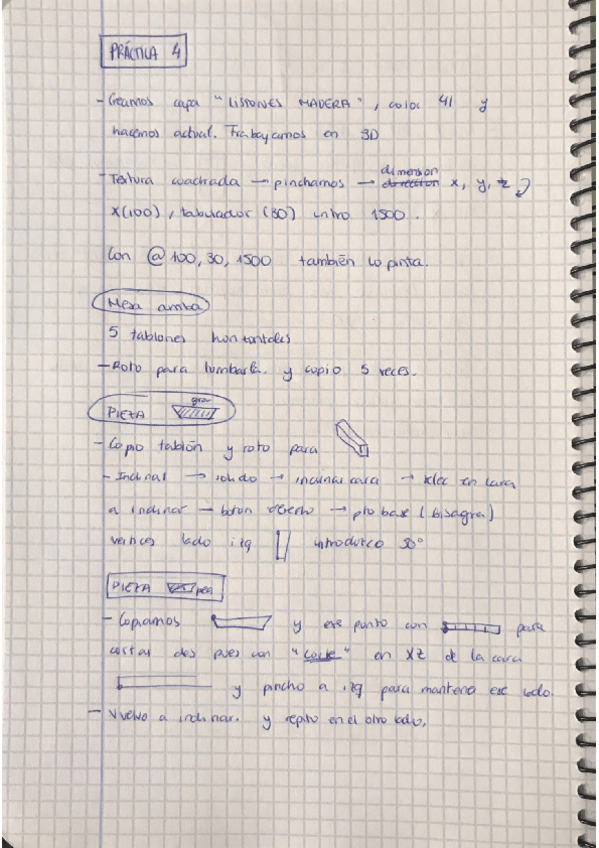 PRÁCTICA 4
- Creamos capa "LISTONES MADERA", color 41 y
hacemos actual. Trabajamos en 3D
- Textura cuadrada → pinchamos → dimension x, y, z
x(100), tabulador (30) intro 1500.
Con @ 100, 30, 1500 también lo pinta.
Mesa arriba
5 tablones horizontales
- Roto para tumbarla. y copio 5 veces.
PIEZA gran
- Copio tablón y roto para
- Inclinar → solido → inclinar cara → selec en cara
a inclinar → boton derecho → pto base (bisagra)
vertices lado izq introduzco 30°
PIEZA peq
- Copiamos y ese punto con para
cortar dos pues con "corte" en XZ de la cara
y pincho a izq para mantener ese lado.
- Vuelvo a inclinar. y repito en el otro lado.